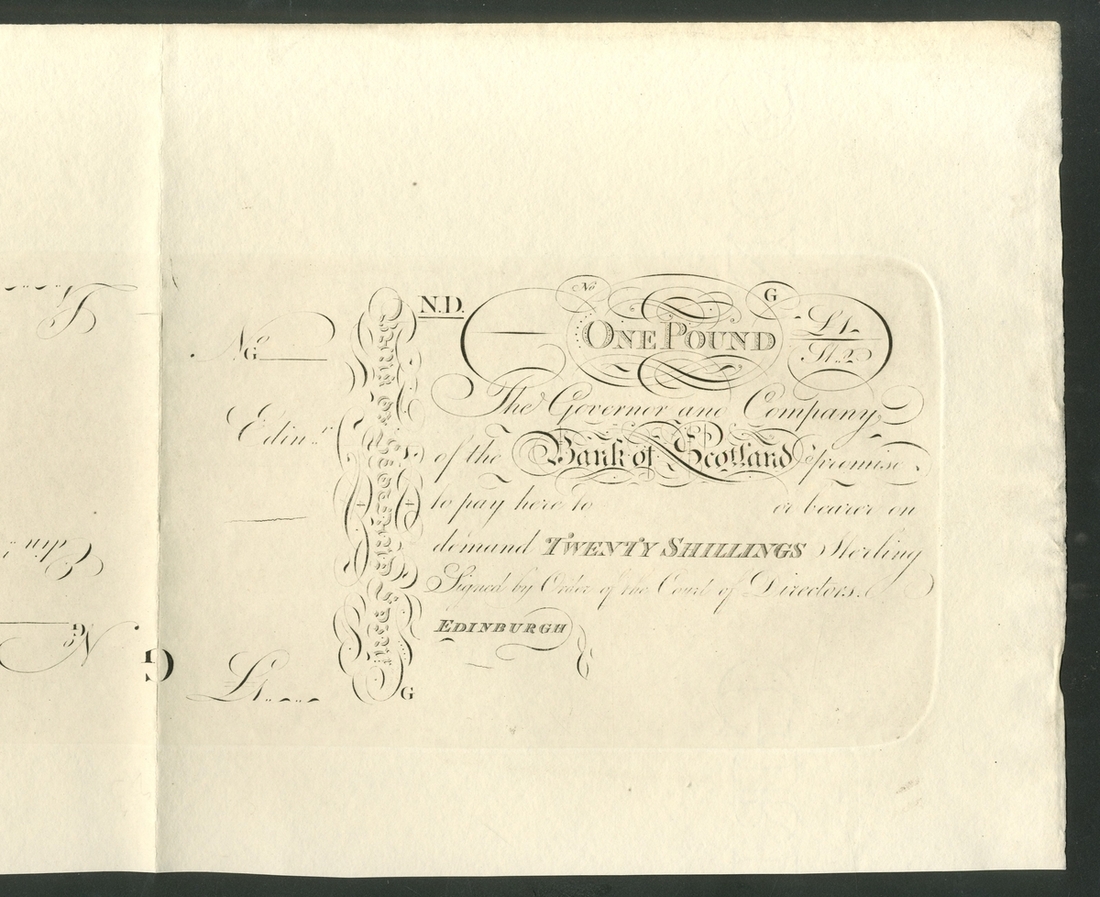 N.D. No G
ONE POUND £1
St. 2
No G
The Governor and Company
Edinr.
of the Bank of Scotland promise
to pay here to or bearer on
demand TWENTY SHILLINGS Sterling
Signed by Order of the Court of Directors.
EDINBURGH
£1
G
Edinr.
No G
G